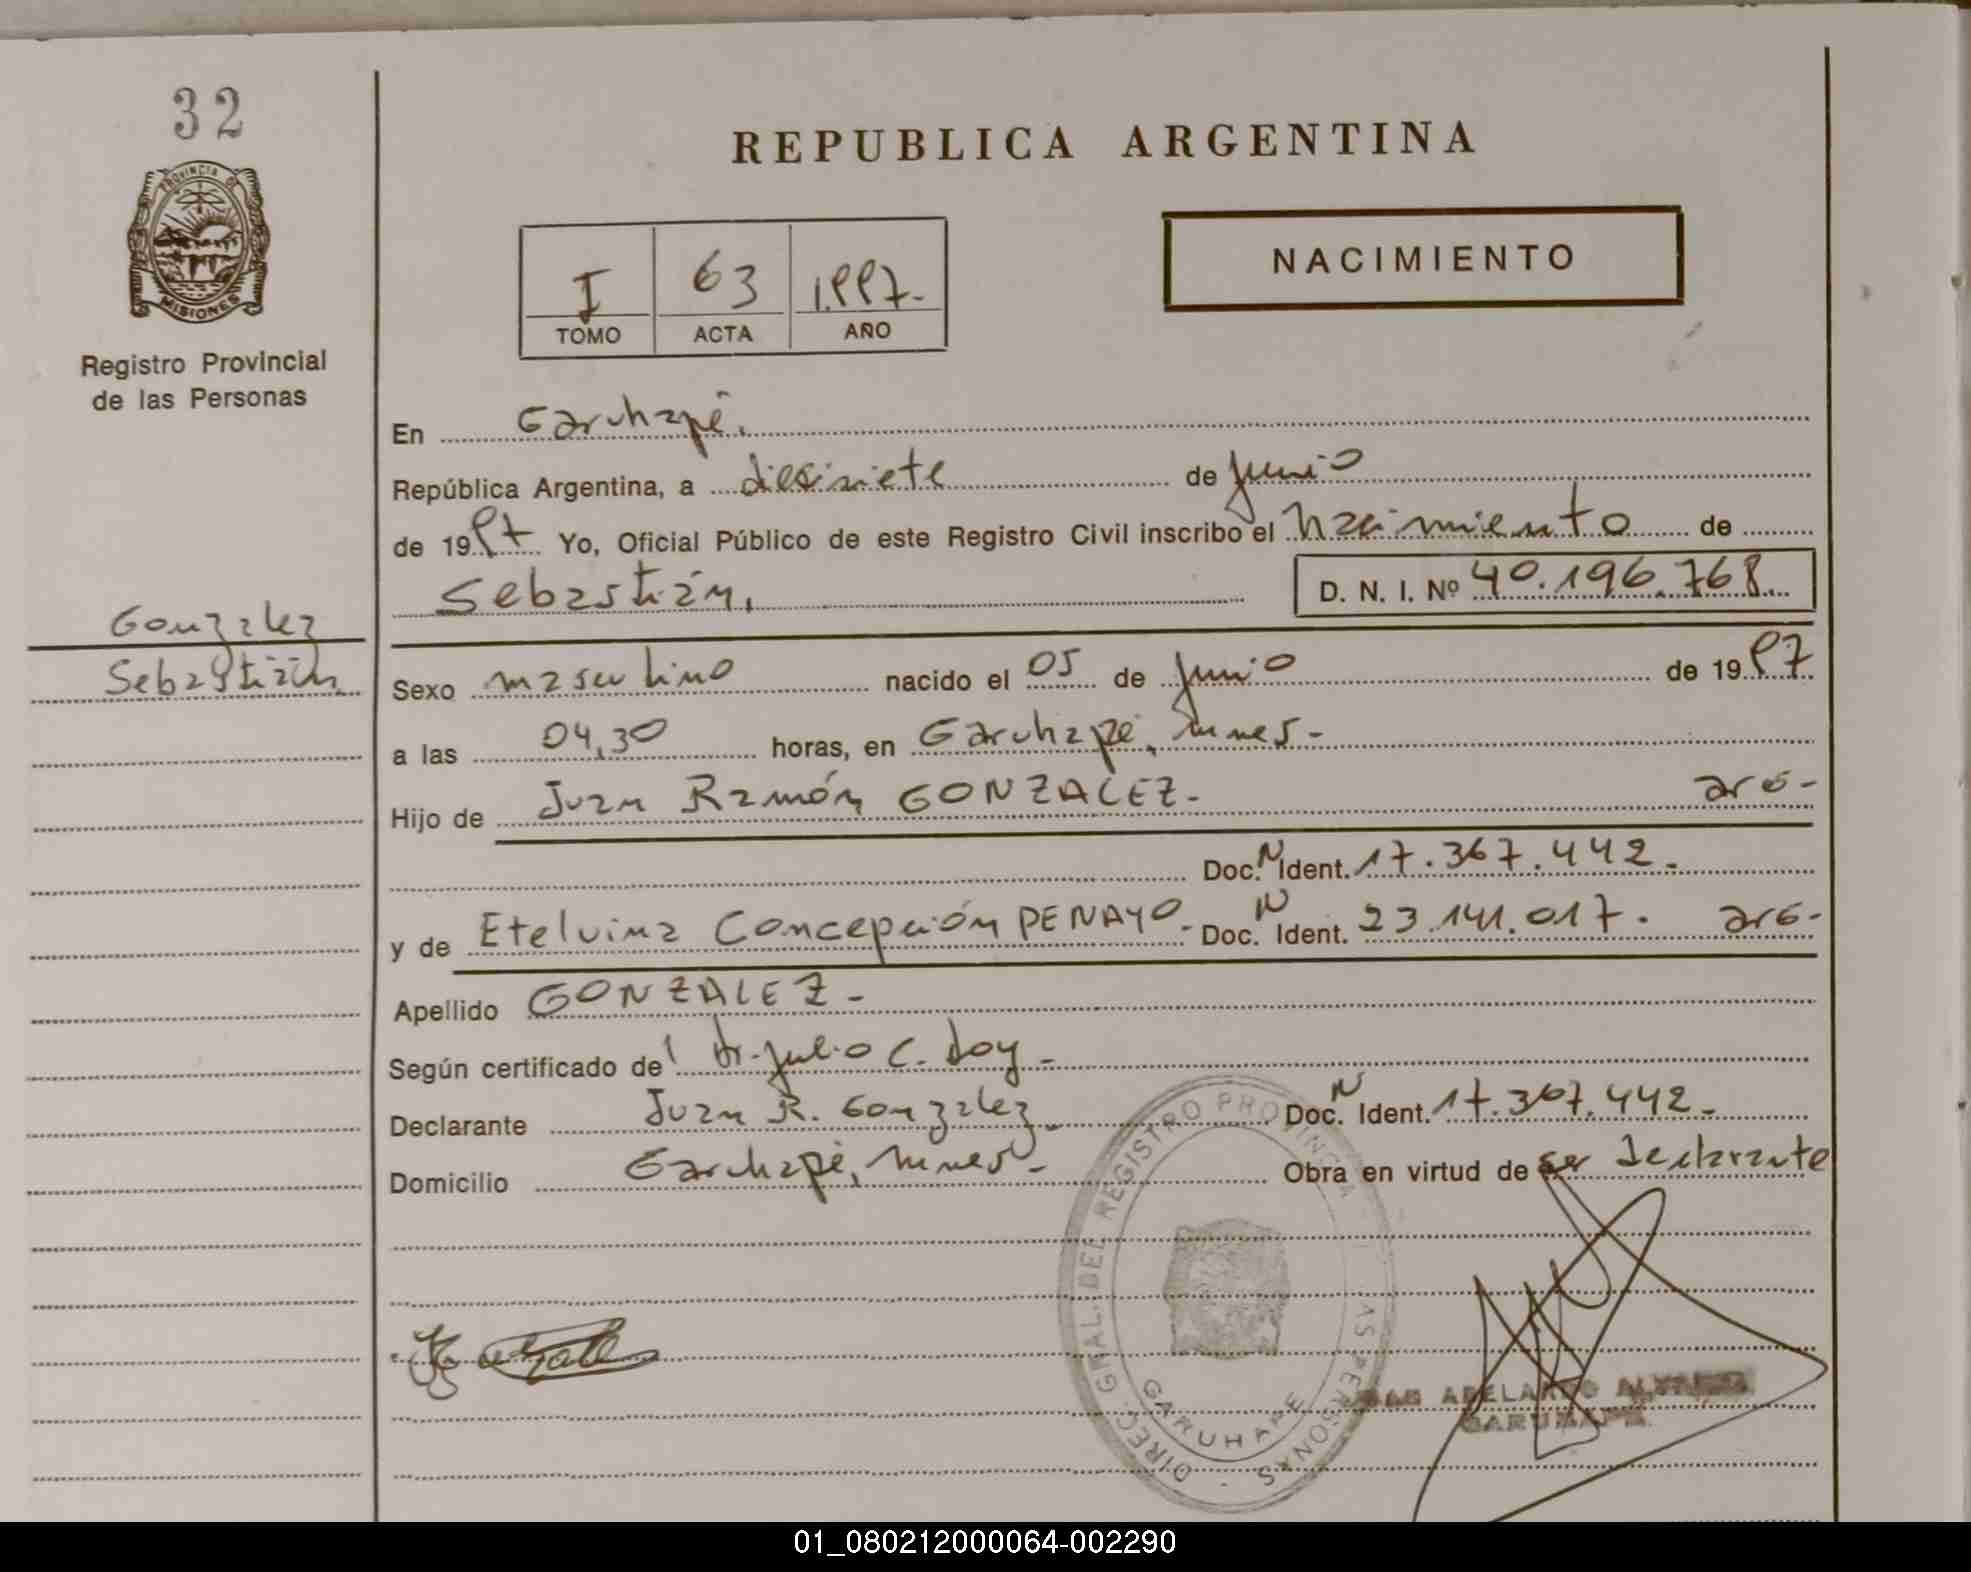 32
PROVINCIA DE
MISIONES
Registro Provincial
de las Personas
Gonzalez
Sebastián
REPUBLICA ARGENTINA
NACIMIENTO
I 63 1.997.-
TOMO ACTA AÑO
En Garuhapé.
República Argentina, a diecisiete de junio
de 1997 Yo, Oficial Público de este Registro Civil inscribo el nacimiento de
Sebastián, D. N. I. Nº 40.196.768
Sexo masculino nacido el 05 de junio de 1997
a las 04,30 horas, en Garuhapé, Mnes.-
Hijo de Juan Ramón GONZALEZ.- arg-
Doc. N Ident. 17.367.442.
y de Etelvina Concepción PENAYO.- Doc. N Ident. 23.141.017. arg-
Apellido GONZALEZ.-
Según certificado del Dr. Julio C. Doy.-
Declarante Juan R. Gonzalez.- Doc. N Ident. 17.367.442.-
Domicilio Garuhapé, Mnes.- Obra en virtud de ser declarante
DIREC. GRAL. DEL REGISTRO PROVINCIAL LAS PERSONAS
GARUHAPE
ABELARDO
GARUHAPE
01_080212000064-002290